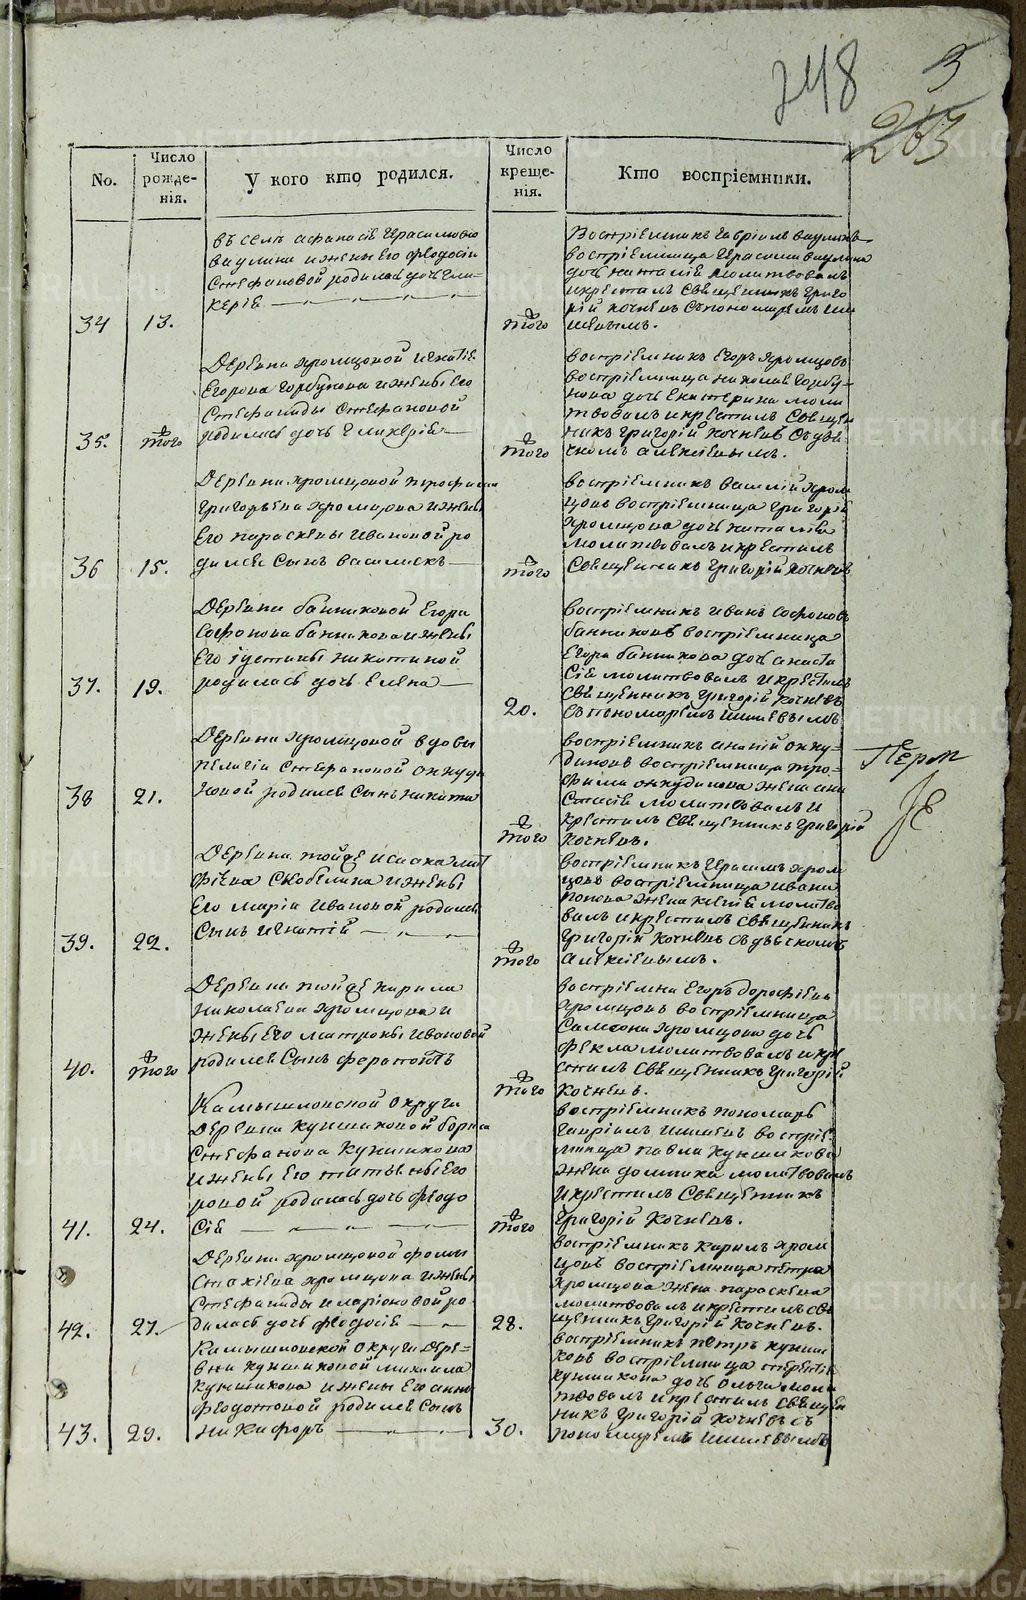 248
3
263
No.
Число рожде-нія.
У кого кто родился.
Число креще-нія.
Кто воспріемники.
34
13.
въ селѣ Афанасія Герасимова
Ваулина и жены его Феодосіи
Стефановой родилась дочь Гли-
керія
того
Воспріемникъ Гавріилъ Ваулинъ
воспріемница Герасима Ваулина
дочь Наталія молитвовалъ
и крестилъ священникъ Григо
рій Кочневъ съ пономаремъ Ши
шевымъ.
35.
того
Деревни Хромцовой Игнатія
Егорова Горбунова и жены его
Стефаниды Стефановой
родилась дочь Гликерія
того
воспріемникъ Егоръ Хромцовъ
воспріемница Николая Горбу-
нова дочь Екатерина моли
твовалъ и крестилъ священ
никъ Григорій Кочневъ съ дья-
комъ Алексіевымъ.
36
15.
Деревни Хромцовой Трофима
Григорьева Хромцова и жены
его Параскевы Ивановой ро
дился сынъ Василискъ
того
воспріемникъ Василій Хром
цовъ воспріемница Григорія
Хромцова дочь Наталія
молитвовалъ и крестилъ
священникъ Григорій Кочневъ
37.
19.
Деревни Банниковой Егора
Софонова Банникова и жены
его Іустины Никитиной
родилась дочь Елена
20.
воспріемникъ Иванъ Софоновъ
Банниковъ воспріемница
Егора Банникова дочь Анаста
сія молитвовалъ и крестилъ
священникъ Григорій Кочневъ
съ пономаремъ Шишевымъ
38
21.
Деревни Хромцовой вдовы
Пелагіи Стефановой Окнуди
новой родился сынъ Никита
того
воспріемникъ Ананій Окну-
диновъ воспріемница Тро-
фима Окнудинова жена Ана
стасія молитвовалъ и
крестилъ священникъ Григорій
Кочневъ.
39.
22.
Деревни той же Исаака Мат
фіева Скобелина и жены
его Маріи Ивановой родился
сынъ Игнатій
того
воспріемникъ Герасимъ Хром
цовъ воспріемница Ивана
Попова жена Ксенія молитво
валъ и крестилъ священникъ
Григорій Кочневъ съ дьячкомъ
Алексіевымъ.
40.
того
Деревни той же Кирила
Николаева Хромцова и
жены его Матроны Ивановой
родился сынъ Ферапонтъ
того
воспріемни Егоръ Дорофіевъ
Хромцовъ воспріемница
Самсона Хромцова дочь
Фекла молитвовалъ и кре
стилъ священникъ Григорій
Кочневъ.
41.
24.
Камышловской округи
Деревни Куншиковой Бориса
Стефанова Куншикова
и жены его Татьяны Его
ровой родилась дочь Феодо
сія
того
воспріемникъ пономарь
Гавріилъ Шишевъ воспріе-
мница Павла Куншикова
жена Домника молитвовалъ
и крестилъ священникъ
Григорій Кочневъ.
42.
27.
Деревни Хромцовой Фомы
Стахіева Хромцова и жены
Стефаниды Иларіоновой ро-
дилась дочь Феодосія
28.
воспріемникъ Карилъ Хром
цовъ воспріемница Петра
Хромцова жена Параскева
молитвовалъ и крестилъ свя
щенникъ Григорій Кочневъ.
43.
29.
Камышловской округи дере-
вни Куншиковой Михаила
Куншикова и жены его Анны
Феодотовой родился сынъ
Никифоръ
30.
воспріемникъ Петръ Кунши
ковъ воспріемница Терентія
Куншикова дочь Ольга моли
твовалъ и крестилъ священ
никъ Григорій Кочневъ съ
пономаремъ Шишевымъ